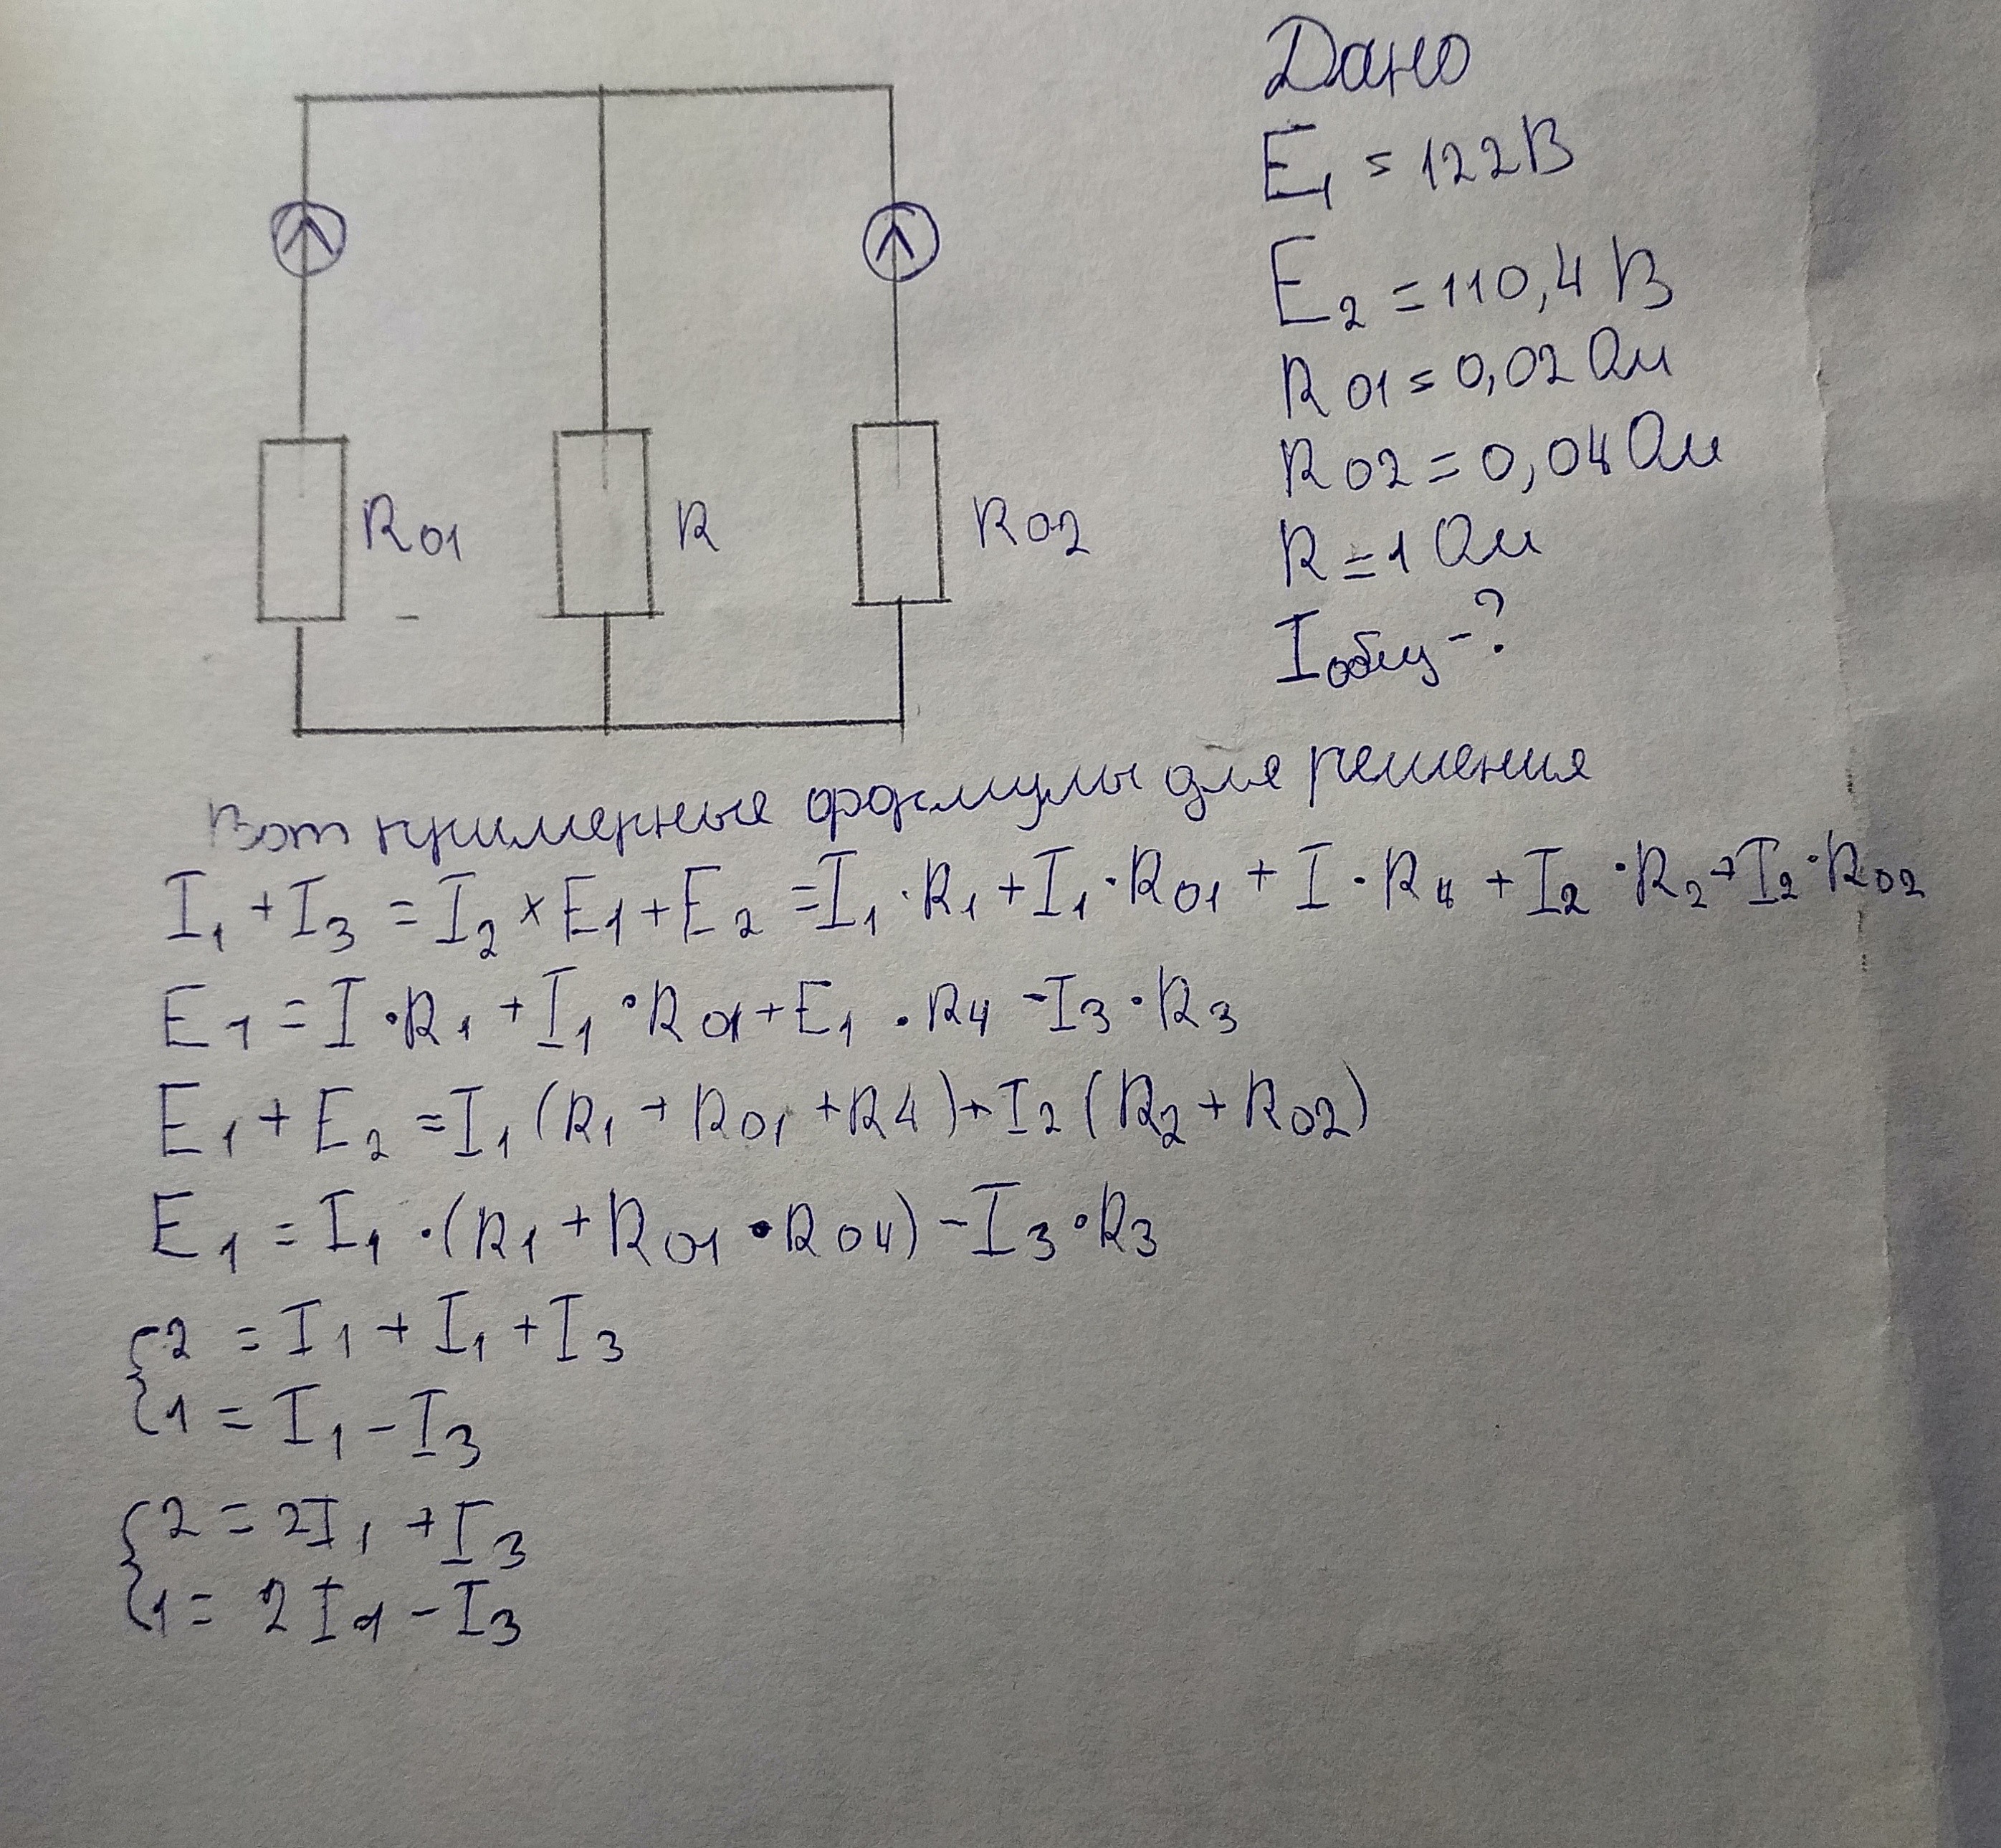 Дано
E1 = 122В
E2 = 110,4 В
R01 = 0,02 Ом
R02 = 0,04 Ом
R = 1 Ом
Iобщ - ?
R01
R
R02
Вот примерные формулы для решения
I1 + I3 = I2 × E1 + E2 = I1 · R1 + I1 · R01 + I · R4 + I2 · R2 + I2 · R02
E1 = I · R1 + I1 · R01 + E1 · R4 - I3 · R3
E1 + E2 = I1 (R1 + R01 + R4) + I2 (R2 + R02)
E1 = I1 · (R1 + R01 · R04) - I3 · R3
{2 = I1 + I1 + I3
1 = I1 - I3
{2 = 2I1 + I3
1 = 2I1 - I3